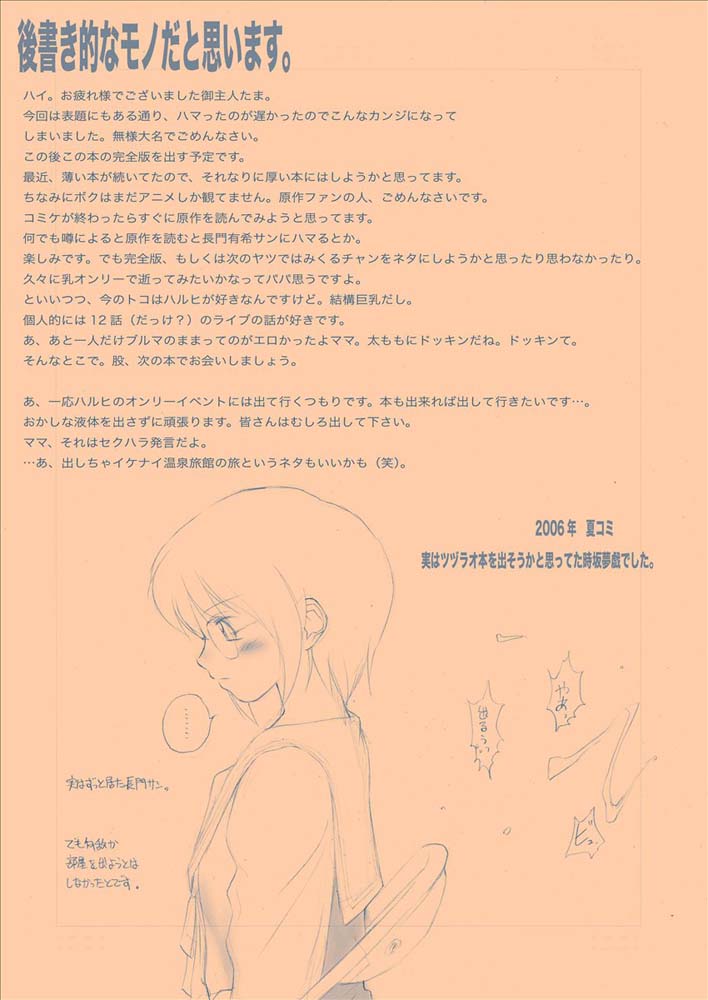 後書き的なモノだと思います。
ハイ。お疲れ様でございました御主人たま。
今回は表題にもある通り、ハマったのが遅かったのでこんなカンジになって
しまいました。無様大名でごめんなさい。
この後この本の完全版を出す予定です。
最近、薄い本が続いてたので、それなりに厚い本にはしようかと思ってます。
ちなみにボクはまだアニメしか観てません。原作ファンの人、ごめんなさいです。
コミケが終わったらすぐに原作を読んでみようと思ってます。
何でも噂によると原作を読むと長門有希サンにハマるとか。
楽しみです。でも完全版、もしくは次のヤツではみくるチャンをネタにしようかと思ったり思わなかったり。
久々に乳オンリーで逝ってみたいかなってパパ思うですよ。
といいつつ、今のトコはハルヒが好きなんですけど。結構巨乳だし。
個人的には12話（だっけ？）のライブの話が好きです。
あ、あと一人だけブルマのままってのがエロかったよママ。太ももにドッキンだね。ドッキンて。
そんなとこで。股、次の本でお会いしましょう。
あ、一応ハルヒのオンリーイベントには出て行くつもりです。本も出来れば出して行きたいです…。
おかしな液体を出さずに頑張ります。皆さんはむしろ出して下さい。
ママ、それはセクハラ発言だよ。
…あ、出しちゃイケナイ温泉旅館の旅というネタもいいかも（笑）。
2006年 夏コミ
実はツヅラオ本を出そうかと思ってた時坂夢戯でした。
やあっ
出るうっ
ビュ
………
実はずっと居た長門サン。
でも何故か
部屋を出ようとは
しなかったとです。